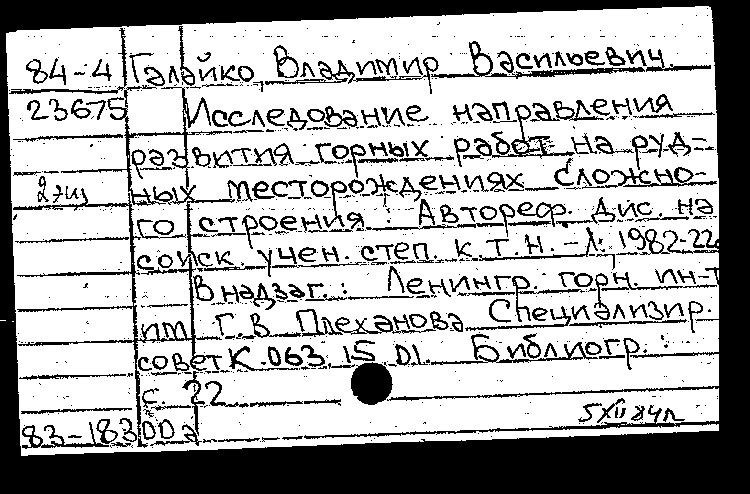 84-4 Галайко, Владимир Васильевич.
23675 Исследование направления
развития горных работ на руд-
2 экз ных месторождениях сложно-
го строения : Автореф. дис. на
соиск. учен. степ. к.т.н. - Л. 1982-22с
В надзаг.: Ленингр. горн. ин-т
им Г.В Плеханова Специализир.
совет К.063.15 01. Библиогр. :
с. 22
5 XII 84г
83-18300а